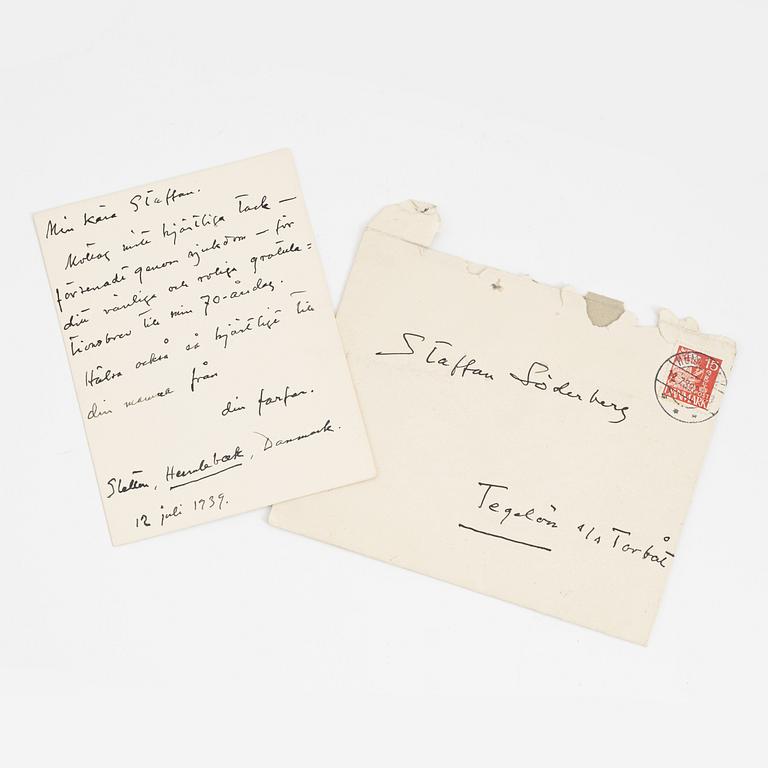 Min kära Staffan.
Mottag mitt hjärtliga tack —
försenadt genom sjukdom — för
ditt vänliga och roliga gratula=
tionsbrev till min 70-årsdag.
Hälsa också så hjärtligt till
din mamma från
din farfar.
Sletten, Humlebæk, Danmark.
12 juli 1939.
Staffan Söderberg
Tegelön s/s Torbåt
15
DANMARK